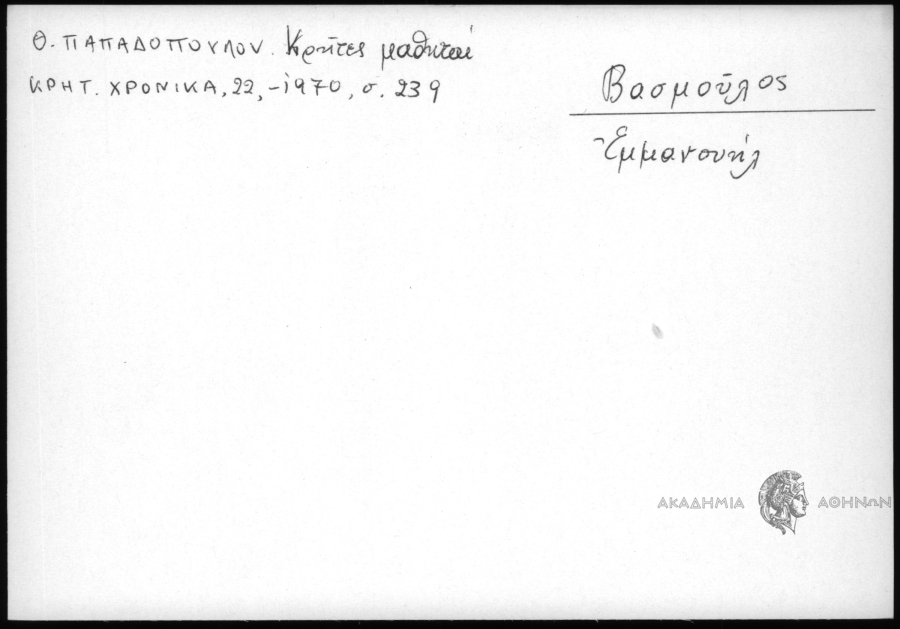 Θ. ΠΑΠΑΔΟΠΟΥΛΟΥ. Κρῆτες μαθηταί
ΚΡΗΤ. ΧΡΟΝΙΚΑ, 22,-1970, σ. 239
Βασμοῦλος
Ἐμμανουήλ
ΑΚΑΔΗΜΙΑ ΑΘΗΝΩΝ